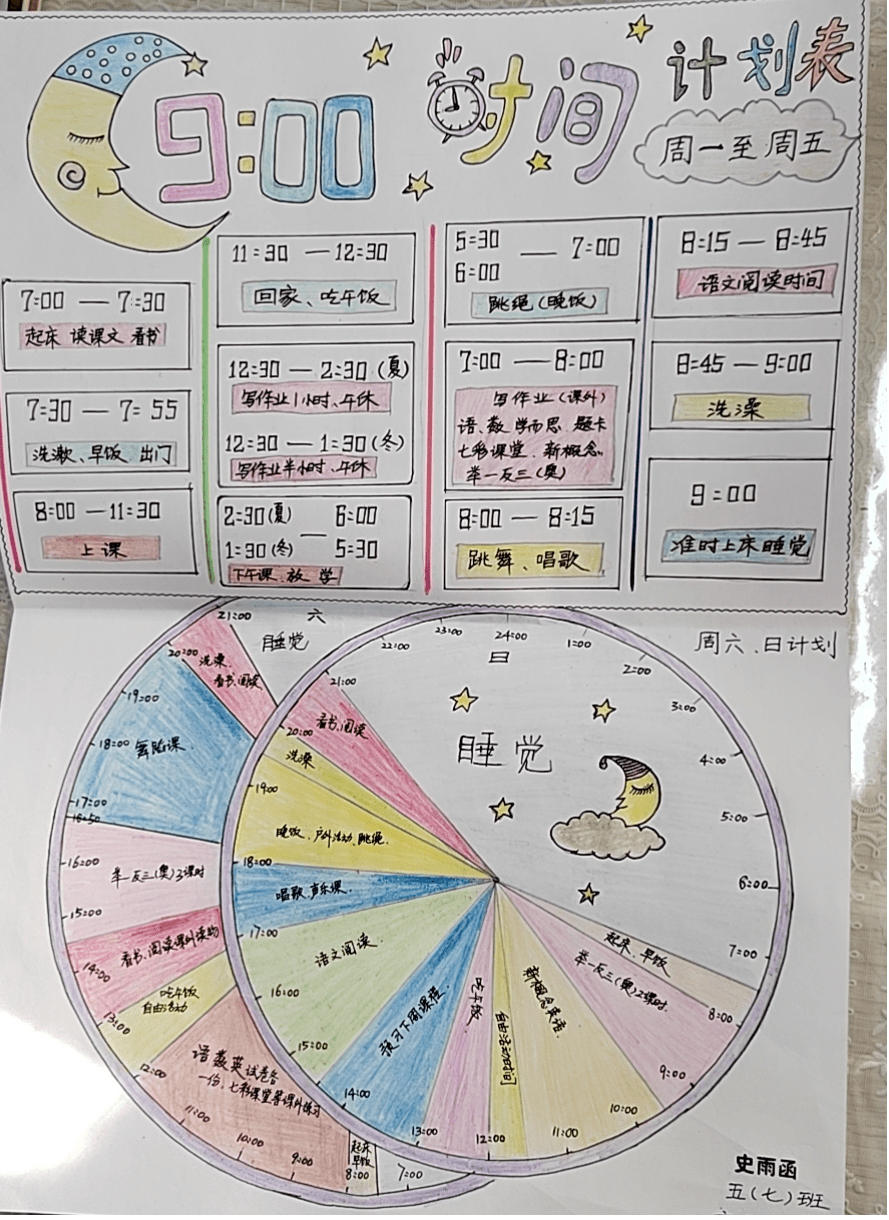 9:00 时间 计划表
周一至周五
7:00 — 7:30
起床 读课文 看书
7:30 — 7:55
洗漱、早饭 出门
8:00 — 11:30
上课
11:30 — 12:30
回家、吃午饭
12:30 — 2:30(夏)
写作业1小时、午休
12:30 — 1:30(冬)
写作业半小时、午休
2:30(夏) — 6:00
1:30(冬) 5:30
下午课、放学
5:30 — 7:00
6:00
跳绳(晚饭)
7:00 — 8:00
写作业(课外)
语、数 学而思 题卡
七彩课堂、新概念
举一反三(奥)
8:00 — 8:15
跳舞、唱歌
8:15 — 8:45
语文阅读时间
8:45 — 9:00
洗澡
9:00
准时上床睡觉
周六、日计划
六
睡觉
21:00
20:00
洗澡、
看书、阅读
19:00
18:00
舞蹈课
17:00
16:50
16:00
举一反三(奥)3课时
15:00
看书、阅读课外读物
14:00
吃午饭
自由活动
13:00
12:00
语数英试卷各
一份,七彩课堂等课外练习
11:00
10:00
9:00
8:00
起床
早饭
7:00
日
睡觉
22:00
23:00
24:00
1:00
2:00
3:00
4:00
5:00
6:00
7:00
起床、早饭
8:00
举一反三(奥)2课时
9:00
10:00
新概念英语
11:00
12:00
自由活动时间
吃午饭
13:00
预习下周课程
14:00
15:00
语文阅读
16:00
17:00
唱歌、声乐课
18:00
晚饭、户外活动、跳绳
19:00
洗澡
20:00
看书、阅读
21:00
史雨函
五(七)班